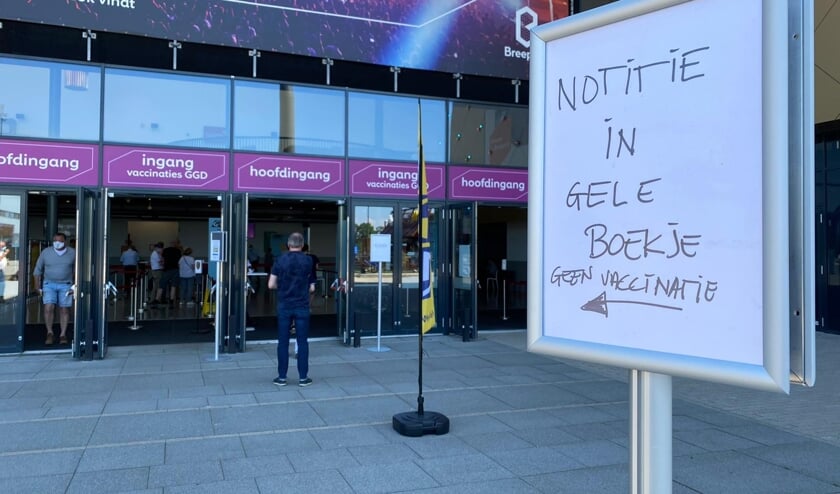 vindt
Breep
ofdingang
ingang
vaccinaties GGD
hoofdingang
ingang
vaccinaties GGD
hoofdingang
NOTITIE
IN
GELE
BOEKJE
GEEN VACCINATIE